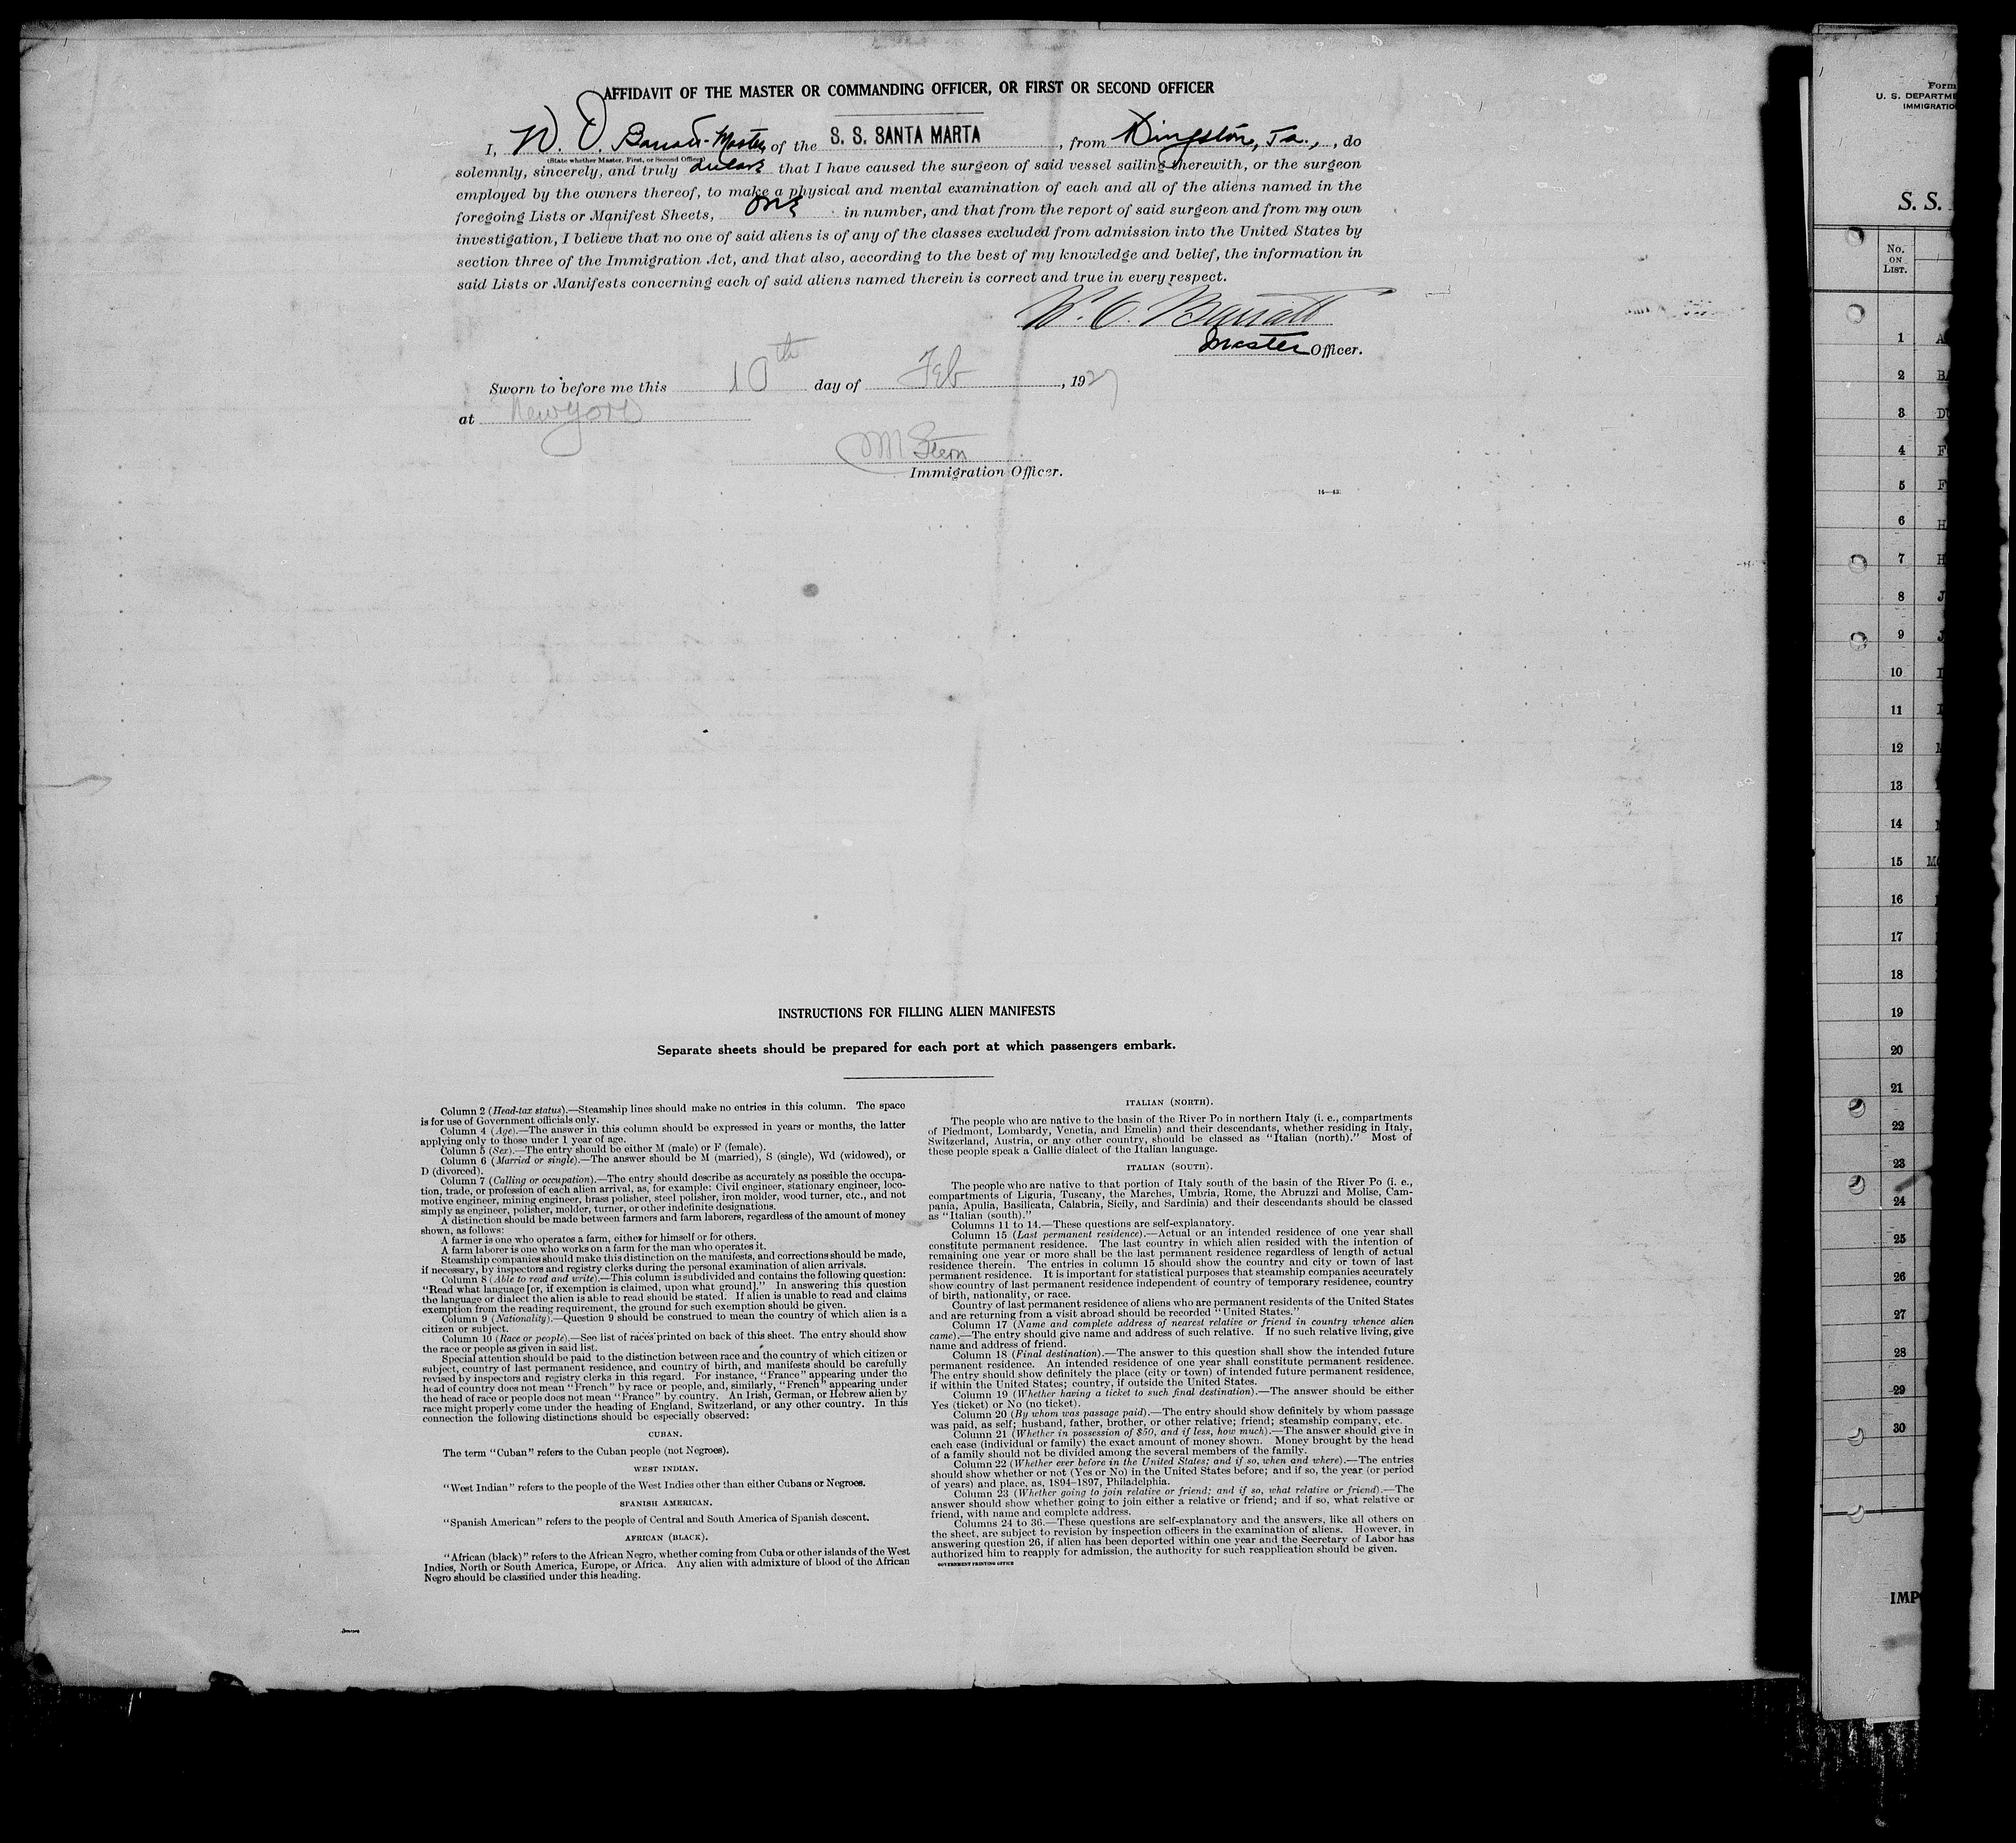 AFFIDAVIT OF THE MASTER OR COMMANDING OFFICER, OR FIRST OR SECOND OFFICER
I, W. O. Barratt - Master of the S. S. SANTA MARTA, from Kingston, Ja., do
(State whether Master, First, or Second Officer)
solemnly, sincerely, and truly declare that I have caused the surgeon of said vessel sailing therewith, or the surgeon
employed by the owners thereof, to make a physical and mental examination of each and all of the aliens named in the
foregoing Lists or Manifest Sheets, one in number, and that from the report of said surgeon and from my own
investigation, I believe that no one of said aliens is of any of the classes excluded from admission into the United States by
section three of the Immigration Act, and that also, according to the best of my knowledge and belief, the information in
said Lists or Manifests concerning each of said aliens named therein is correct and true in every respect.
W. O. Barratt
Master Officer.
Sworn to before me this 10th day of Feb, 1927
at New York
M Stern
Immigration Officer.
INSTRUCTIONS FOR FILLING ALIEN MANIFESTS
Separate sheets should be prepared for each port at which passengers embark.
Column 2 (Head-tax status).—Steamship lines should make no entries in this column. The space
is for use of Government officials only.
Column 4 (Age).—The answer in this column should be expressed in years or months, the latter
applying only to those under 1 year of age.
Column 5 (Sex).—The entry should be either M (male) or F (female).
Column 6 (Married or single).—The answer should be M (married), S (single), Wd (widowed), or
D (divorced).
Column 7 (Calling or occupation).—The entry should describe as accurately as possible the occupa-
tion, trade, or profession of each alien arrival, as, for example: Civil engineer, stationary engineer, loco-
motive engineer, mining engineer, brass polisher, steel polisher, iron molder, wood turner, etc., and not
simply as engineer, polisher, molder, turner, or other indefinite designations.
A distinction should be made between farmers and farm laborers, regardless of the amount of money
shown, as follows:
A farmer is one who operates a farm, either for himself or for others.
A farm laborer is one who works on a farm for the man who operates it.
Steamship companies should make this distinction on the manifests, and corrections should be made,
if necessary, by inspectors and registry clerks during the personal examination of alien arrivals.
Column 8 (Able to read and write).—This column is subdivided and contains the following question:
"Read what language [or, if exemption is claimed, upon what ground]." In answering this question
the language or dialect the alien is able to read should be stated. If alien is unable to read and claims
exemption from the reading requirement, the ground for such exemption should be given.
Column 9 (Nationality).—Question 9 should be construed to mean the country of which alien is a
citizen or subject.
Column 10 (Race or people).—See list of races printed on back of this sheet. The entry should show
the race or people as given in said list.
Special attention should be paid to the distinction between race and the country of which citizen or
subject, country of last permanent residence, and country of birth, and manifests should be carefully
revised by inspectors and registry clerks in this regard. For instance, "France" appearing under the
head of country does not mean "French" by race or people, and, similarly, "French" appearing under
the head of race or people does not mean "France" by country. An Irish, German, or Hebrew alien by
race might properly come under the heading of England, Switzerland, or any other country. In this
connection the following distinctions should be especially observed:
CUBAN.
The term "Cuban" refers to the Cuban people (not Negroes).
WEST INDIAN.
"West Indian" refers to the people of the West Indies other than either Cubans or Negroes.
SPANISH AMERICAN.
"Spanish American" refers to the people of Central and South America of Spanish descent.
AFRICAN (BLACK).
"African (black)" refers to the African Negro, whether coming from Cuba or other islands of the West
Indies, North or South America, Europe, or Africa. Any alien with admixture of blood of the African
Negro should be classified under this heading.
ITALIAN (NORTH).
The people who are native to the basin of the River Po in northern Italy (i. e., compartments
of Piedmont, Lombardy, Venetia, and Emelia) and their descendants, whether residing in Italy,
Switzerland, Austria, or any other country, should be classed as "Italian (north)." Most of
these people speak a Gallic dialect of the Italian language.
ITALIAN (SOUTH).
The people who are native to that portion of Italy south of the basin of the River Po (i. e.,
compartments of Liguria, Tuscany, the Marches, Umbria, Rome, the Abruzzi and Molise, Cam-
pania, Apulia, Basilicata, Calabria, Sicily, and Sardinia) and their descendants should be classed
as "Italian (south)."
Columns 11 to 14.—These questions are self-explanatory.
Column 15 (Last permanent residence).—Actual or an intended residence of one year shall
constitute permanent residence. The last country in which alien resided with the intention of
remaining one year or more shall be the last permanent residence regardless of length of actual
residence therein. The entries in column 15 should show the country and city or town of last
permanent residence. It is important for statistical purposes that steamship companies accurately
show country of last permanent residence independent of country of temporary residence, country
of birth, nationality, or race.
Country of last permanent residence of aliens who are permanent residents of the United States
and are returning from a visit abroad should be recorded "United States."
Column 17 (Name and complete address of nearest relative or friend in country whence alien
came).—The entry should give name and address of such relative. If no such relative living, give
name and address of friend.
Column 18 (Final destination).—The answer to this question shall show the intended future
permanent residence. An intended residence of one year shall constitute permanent residence.
The entry should show definitely the place (city or town) of intended future permanent residence,
if within the United States; country, if outside the United States.
Column 19 (Whether having a ticket to such final destination).—The answer should be either
Yes (ticket) or No (no ticket).
Column 20 (By whom was passage paid).—The entry should show definitely by whom passage
was paid, as self; husband, father, brother, or other relative; friend; steamship company, etc.
Column 21 (Whether in possession of $50, and if less, how much).—The answer should give in
each case (individual or family) the exact amount of money shown. Money brought by the head
of a family should not be divided among the several members of the family.
Column 22 (Whether ever before in the United States; and if so, when and where).—The entries
should show whether or not (Yes or No) in the United States before; and if so, the year (or period
of years) and place, as, 1894–1897, Philadelphia.
Column 23 (Whether going to join relative or friend; and if so, what relative or friend).—The
answer should show whether going to join either a relative or friend; and if so, what relative or
friend, with name and complete address.
Columns 24 to 36.—These questions are self-explanatory and the answers, like all others on
the sheet, are subject to revision by inspection officers in the examination of aliens. However, in
answering question 26, if alien has been deported within one year and the Secretary of Labor has
authorized him to reapply for admission, the authority for such reapplication should be given.
GOVERNMENT PRINTING OFFICE
Form
U. S. DEPARTME
IMMIGRATIO
S. S.
No.
ON
LIST.
1 A
2 BA
3 DU
4 F
5 F
6 H
7 H
8 J
9 J
10
11
12
13
14
15 MC
16
17
18
19
20
21
22
23
24
25
26
27
28
29
30
IMP